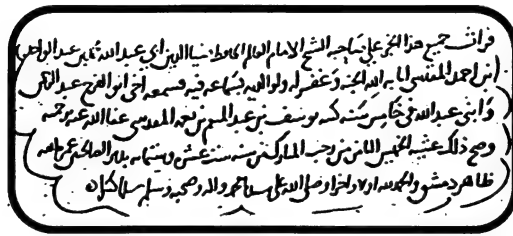 قرأت جميع هذا الجزء على صاحبه الشيخ الامام العالم الحافظ ضياء الدين ابي عبد الله محمد بن عبد الواحد
ابن احمد المقدسي اثابه الله الجنة وغفر له ولوالديه بسماعه فيه فسمعه اخي ابو الفرج عبد الرحمن
وابني عبد الله في خامس سنة كتبه يوسف بن عبد المنعم بن نعمة المقدسي عفا الله عنه برحمته
وصح ذلك عشية الخميس الثامن من رجب المبارك من سنة ست عشرة وستمائة بدير الصالحين عمره الله
ظاهر دمشق والحمد لله اولا واخرا وصلى الله على سيدنا محمد واله وصحبه وسلم تسليما كثيرا